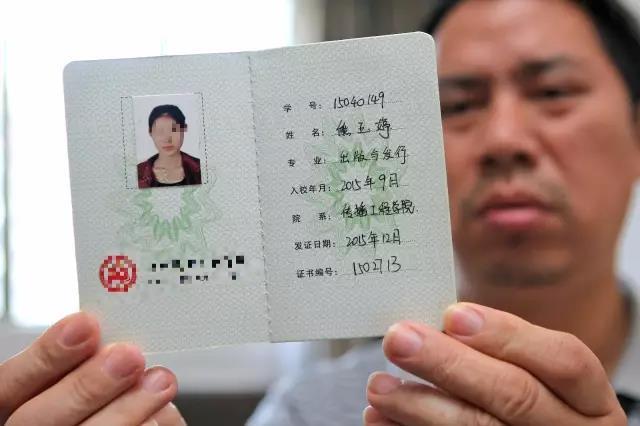 学　号：15040149
姓　名：熊玉婷
专　业：出版与发行
入校年月：2015年9月
院　系：传播工程学院
发证日期：2015年12月
证书编号：1502713